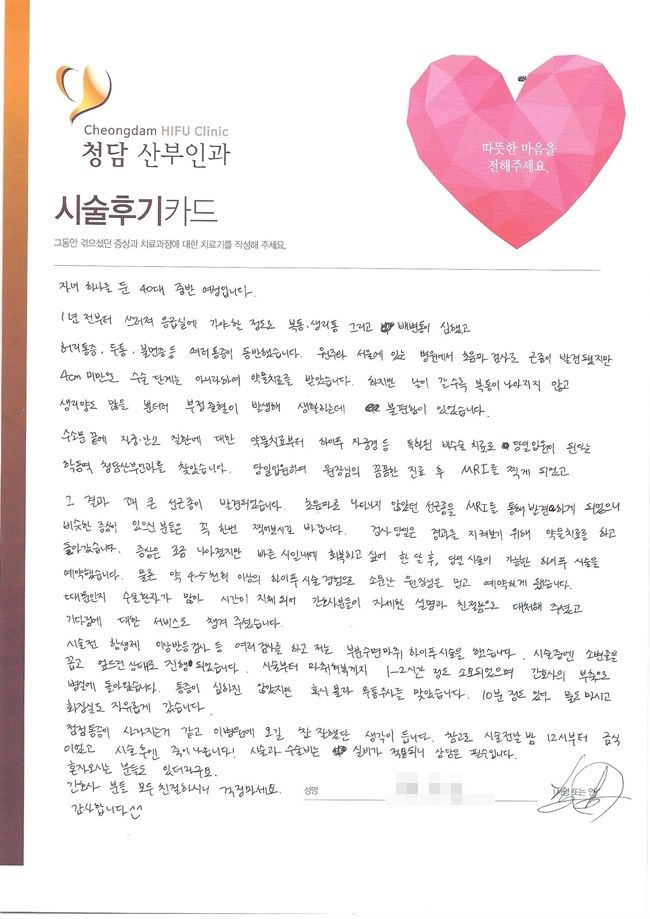 Cheongdam HIFU Clinic
청담 산부인과
따뜻한 마음을
전해주세요.
시술후기카드
그동안 겪으셨던 증상과 치료과정에 대한 치료기를 작성해 주세요.
자녀 하나를 둔 40대 중반 여성입니다.
1년 전부터 쓰러져 응급실에 가야할 정도로 복통.생리통 그리고 배변통이 심했고
허리통증, 두통, 불면증등 여러통증이 동반했습니다. 원주와 서울에 있는 병원에서 초음파 검사로 근종이 발견됐지만
4cm 미만으로 수술 단계는 아니라하여 약물치료를 받았습니다. 하지만 날이 갈수록 복통이 나아지지 않고
생리양도 많을 뿐더러 부정출혈이 발생해 생활하는데 불편함이 있었습니다.
수소문 끝에 자궁.난소 질환에 대한 약물치료부터 하이푸 자궁경 등 특화된 비수술 치료로 당일입원이 된다는
학동역 청담산부인과를 찾았습니다. 당일입원하여 원장님의 꼼꼼한 진료 후 MRI를 찍게 되었고
그 결과 꽤 큰 선근종이 발견되었습니다. 초음파로 나타나지 않았던 선근종을 MRI를 통해 발견하게 되었으니
비슷한 증상이 있으신 분들은 꼭 한번 찍어보시길 바랍니다. 검사 당일은 결과를 지켜보기 위해 약물치료를 하고
돌아갔습니다. 증상은 조금 나아졌지만 빠른 시일내에 회복하고 싶어 한 달 후, 당일 시술이 가능한 하이푸 시술을
예약했습니다. 물론 약 4~5천회 이상의 하이푸 시술 경험으로 소문난 원장님을 믿고 예약하게 됐습니다.
때문인지 수술환자가 많아 시간이 지체되어 간호사분들이 자세한 설명과 친절함으로 대처해 주셨고
기다림에 대한 서비스도 챙겨 주셨습니다.
시술전 항생제 이상반응검사 등 여러검사를 하고 저는 부분수면마취 하이푸시술을 했습니다. 시술중엔 소변줄을
꼽고 엎드린 상태로 진행되었습니다. 시술부터 마취회복까지 1~2시간 정도 소요되었으며 간호사의 부축으로
병실에 돌아왔습니다. 통증이 심하진 않았지만 혹시 몰라 무통주사는 맞았습니다. 10분 정도 있다 물도 마시고
화장실도 자유롭게 갔습니다.
점점 통증이 사라지는거 같고 이병원에 오길 참 잘했단 생각이 듭니다. 참고로 시술전날 밤 12시부터 금식
이었고 시술 후엔 죽이 나옵니다! 시술과 수술비는 실비가 적용되니 상담은 필수입니다.
혼자오시는 분들도 있더라구요.
간호사 분들 모두 친절하시니 걱정마세요.
감사합니다^^
성명